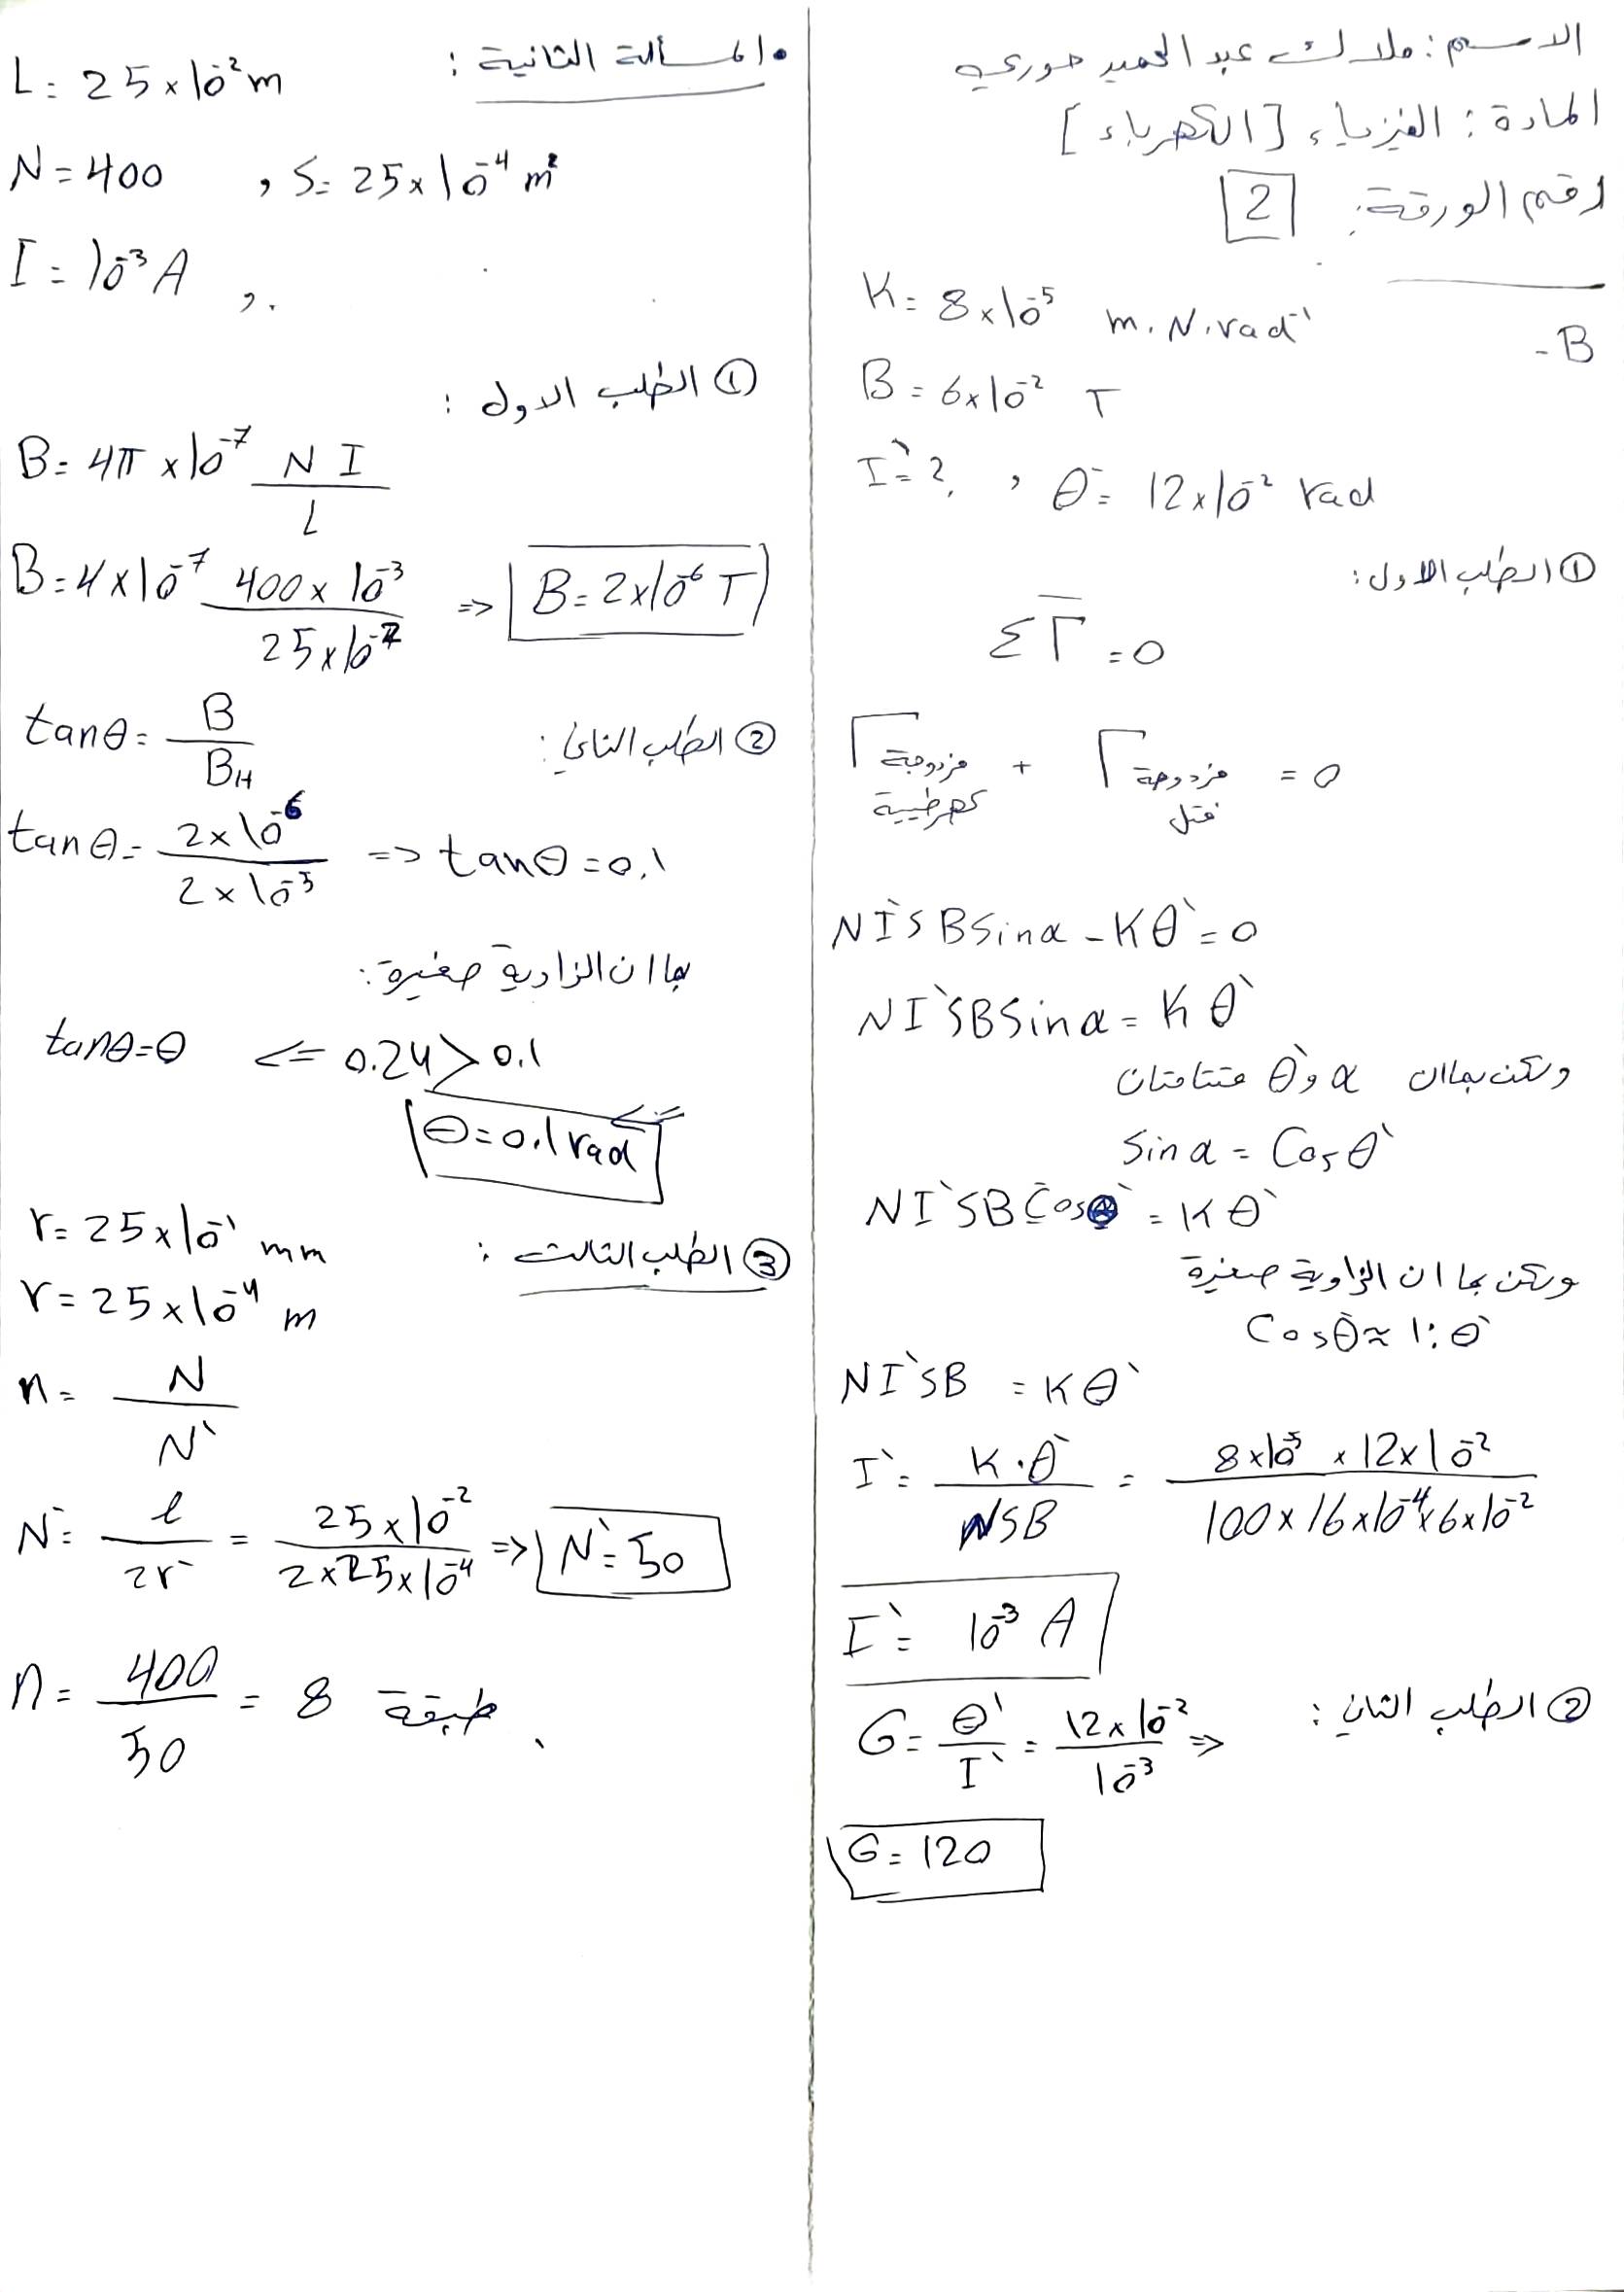 الاسم : ملاك عبد الحميد حوري
المادة : الفيزياء [الكهرباء]
رقم الورقة: 2
- B
K = 8×10⁻⁵ m.N.rad⁻¹
B = 6×10⁻² T
I` = ? , θ` = 12×10⁻² rad
① الطلب الاول :
Σ Γ̅ = 0
Γ مزدوجة كهرطيسية + Γ مزدوجة فتل = 0
N I` S B Sin α - K θ` = 0
N I` S B Sin α = K θ`
ولكن بما ان α و θ` متتامتان
Sin α = Cos θ`
N I` S B Cos θ` = K θ`
ولكن بما ان الزاوية صغيرة
Cos θ` ≈ 1 : θ`
N I` S B = K θ`
I` = K . θ` / N S B = 8×10⁻⁵ × 12×10⁻² / 100 × 16×10⁻⁴ × 6×10⁻²
I` = 10⁻³ A
② الطلب الثاني :
G = θ` / I` = 12×10⁻² / 10⁻³ ⇒
G = 120
• المسألة الثانية :
L = 25×10⁻² m
N = 400 , S = 25×10⁻⁴ m²
I = 10⁻³ A , .
① الطلب الاول :
B = 4π ×10⁻⁷ N I / L
B = 4×10⁻⁷ 400×10⁻³ / 25×10⁻² ⇒ B = 2×10⁻⁶ T
② الطلب الثاني :
tan θ = B / B_H
tan θ = 2×10⁻⁶ / 2×10⁻⁵ ⇒ tan θ = 0,1
بما ان الزاوية صغيرة :
tan θ = θ <= 0.24 > 0.1
<= θ = 0.1 rad
③ الطلب الثالث :
r = 25×10⁻¹ mm
r = 25×10⁻⁴ m
n = N / N`
N` = l / 2r` = 25×10⁻² / 2×25×10⁻⁴ ⇒ N` = 50
n = 400 / 50 = 8 طبقة .